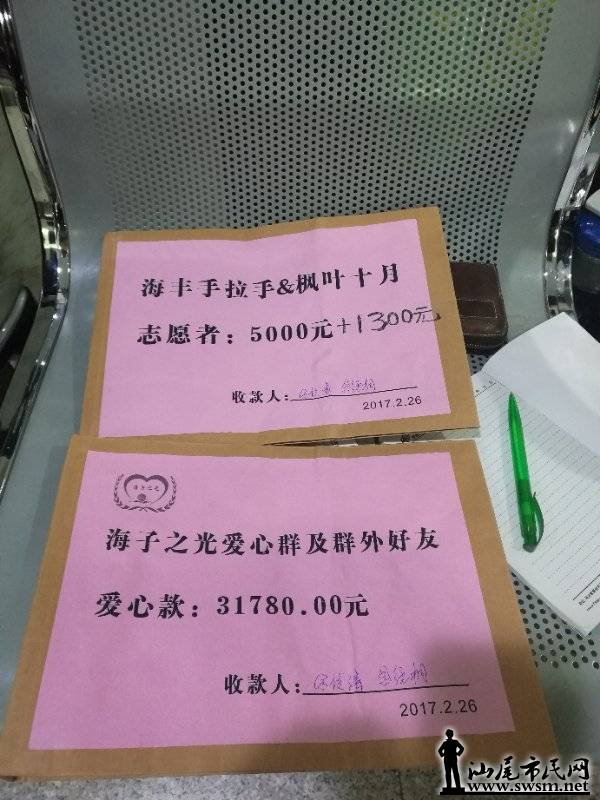 海丰手拉手&枫叶十月
志愿者：5000元+1300元
收款人：
2017.2.26
海子之光爱心群及群外好友
爱心款：31780.00元
收款人：
2017.2.26
汕尾市民网
www.swsm.net